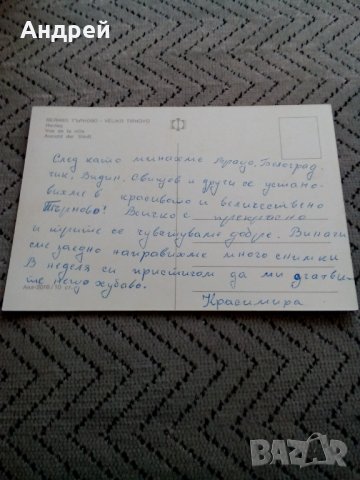 Андрей
ВЕЛИКО ТЪРНОВО - VELIKO TIRNOVO
Изглед
Vue de la ville
Ansicht der Stadt
След като минахме Белоград
чик, Видин, Свищов и други се устано-
вихме в красивото и величествено
Търново! Всичко е прекрасно
и двете се чувствуваме добре. Винаги
сме заедно направихме много снимки
В неделя си пристигам да ми
те нещо хубаво.
Красимира
BAZAR